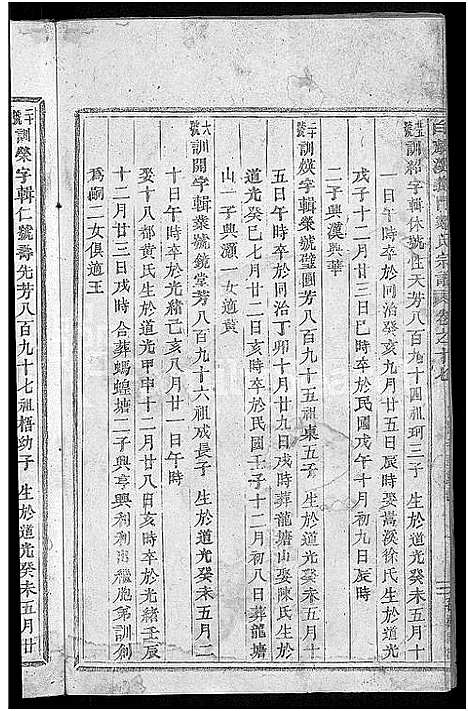 訓紹字輯休號性天芳八百九十四祖珂三子 生於道光癸未五月十
一日午時卒於同治癸亥六月廿五日辰時娶嵩溪徐氏生於道光
戊子十二月廿三日巳時卒於民國戊午十月初九日辰時
二子興漢興華
二十號 訓煐字輯榮號璧圃芳八百九十五祖東五子 生於道光癸未五月十
五日午時卒於同治丁卯十月廿九日戌時葬龍塘山娶陳氏生於
道光癸巳七月二十二日 卒於民國壬子十二月初八日葬龍塘
山一子興灝一女適黃
十六號 訓開字輯業號鏡堂芳八百九十六祖成長子 生於道光癸未五月二
十日午時卒於光緒己亥八月廿一日午時
娶十八都黃氏生於道光甲申十二月廿八日亥時卒於光緒壬辰
十二月廿三日戌時 合葬螞蝗塘二子興亨興利利出繼胞弟訓創
為嗣二女俱適王
二十號 訓榮字輯仁號壽先芳八百九十七祖梧幼子 生於道光癸未五月廿